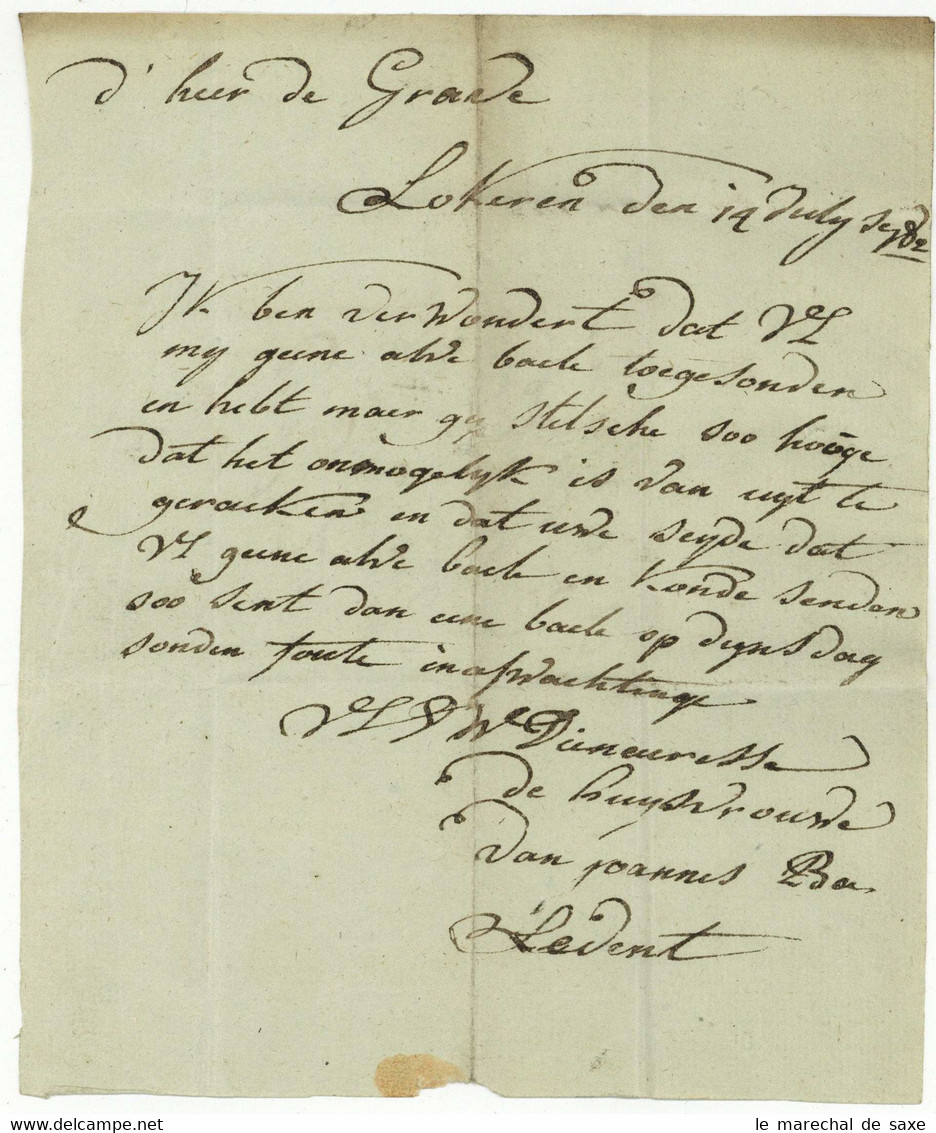 d' heer de Grande
Lokeren den 14 July
Ik ben verwondert dat VL
my geene alve baele toegesonden
en hebt maer gy stelsche soo hooge
dat het onmogelyk is van uyt te
geraeken en dat uwe seyde dat
VL geene alve baele en konde senden
soo sent dan eene baele op dynsdag
sonden foute in afwachtinge
VL D W Dieneuresse
de huysvrouwe
van joannes Ba
Ledent
le marechal de saxe